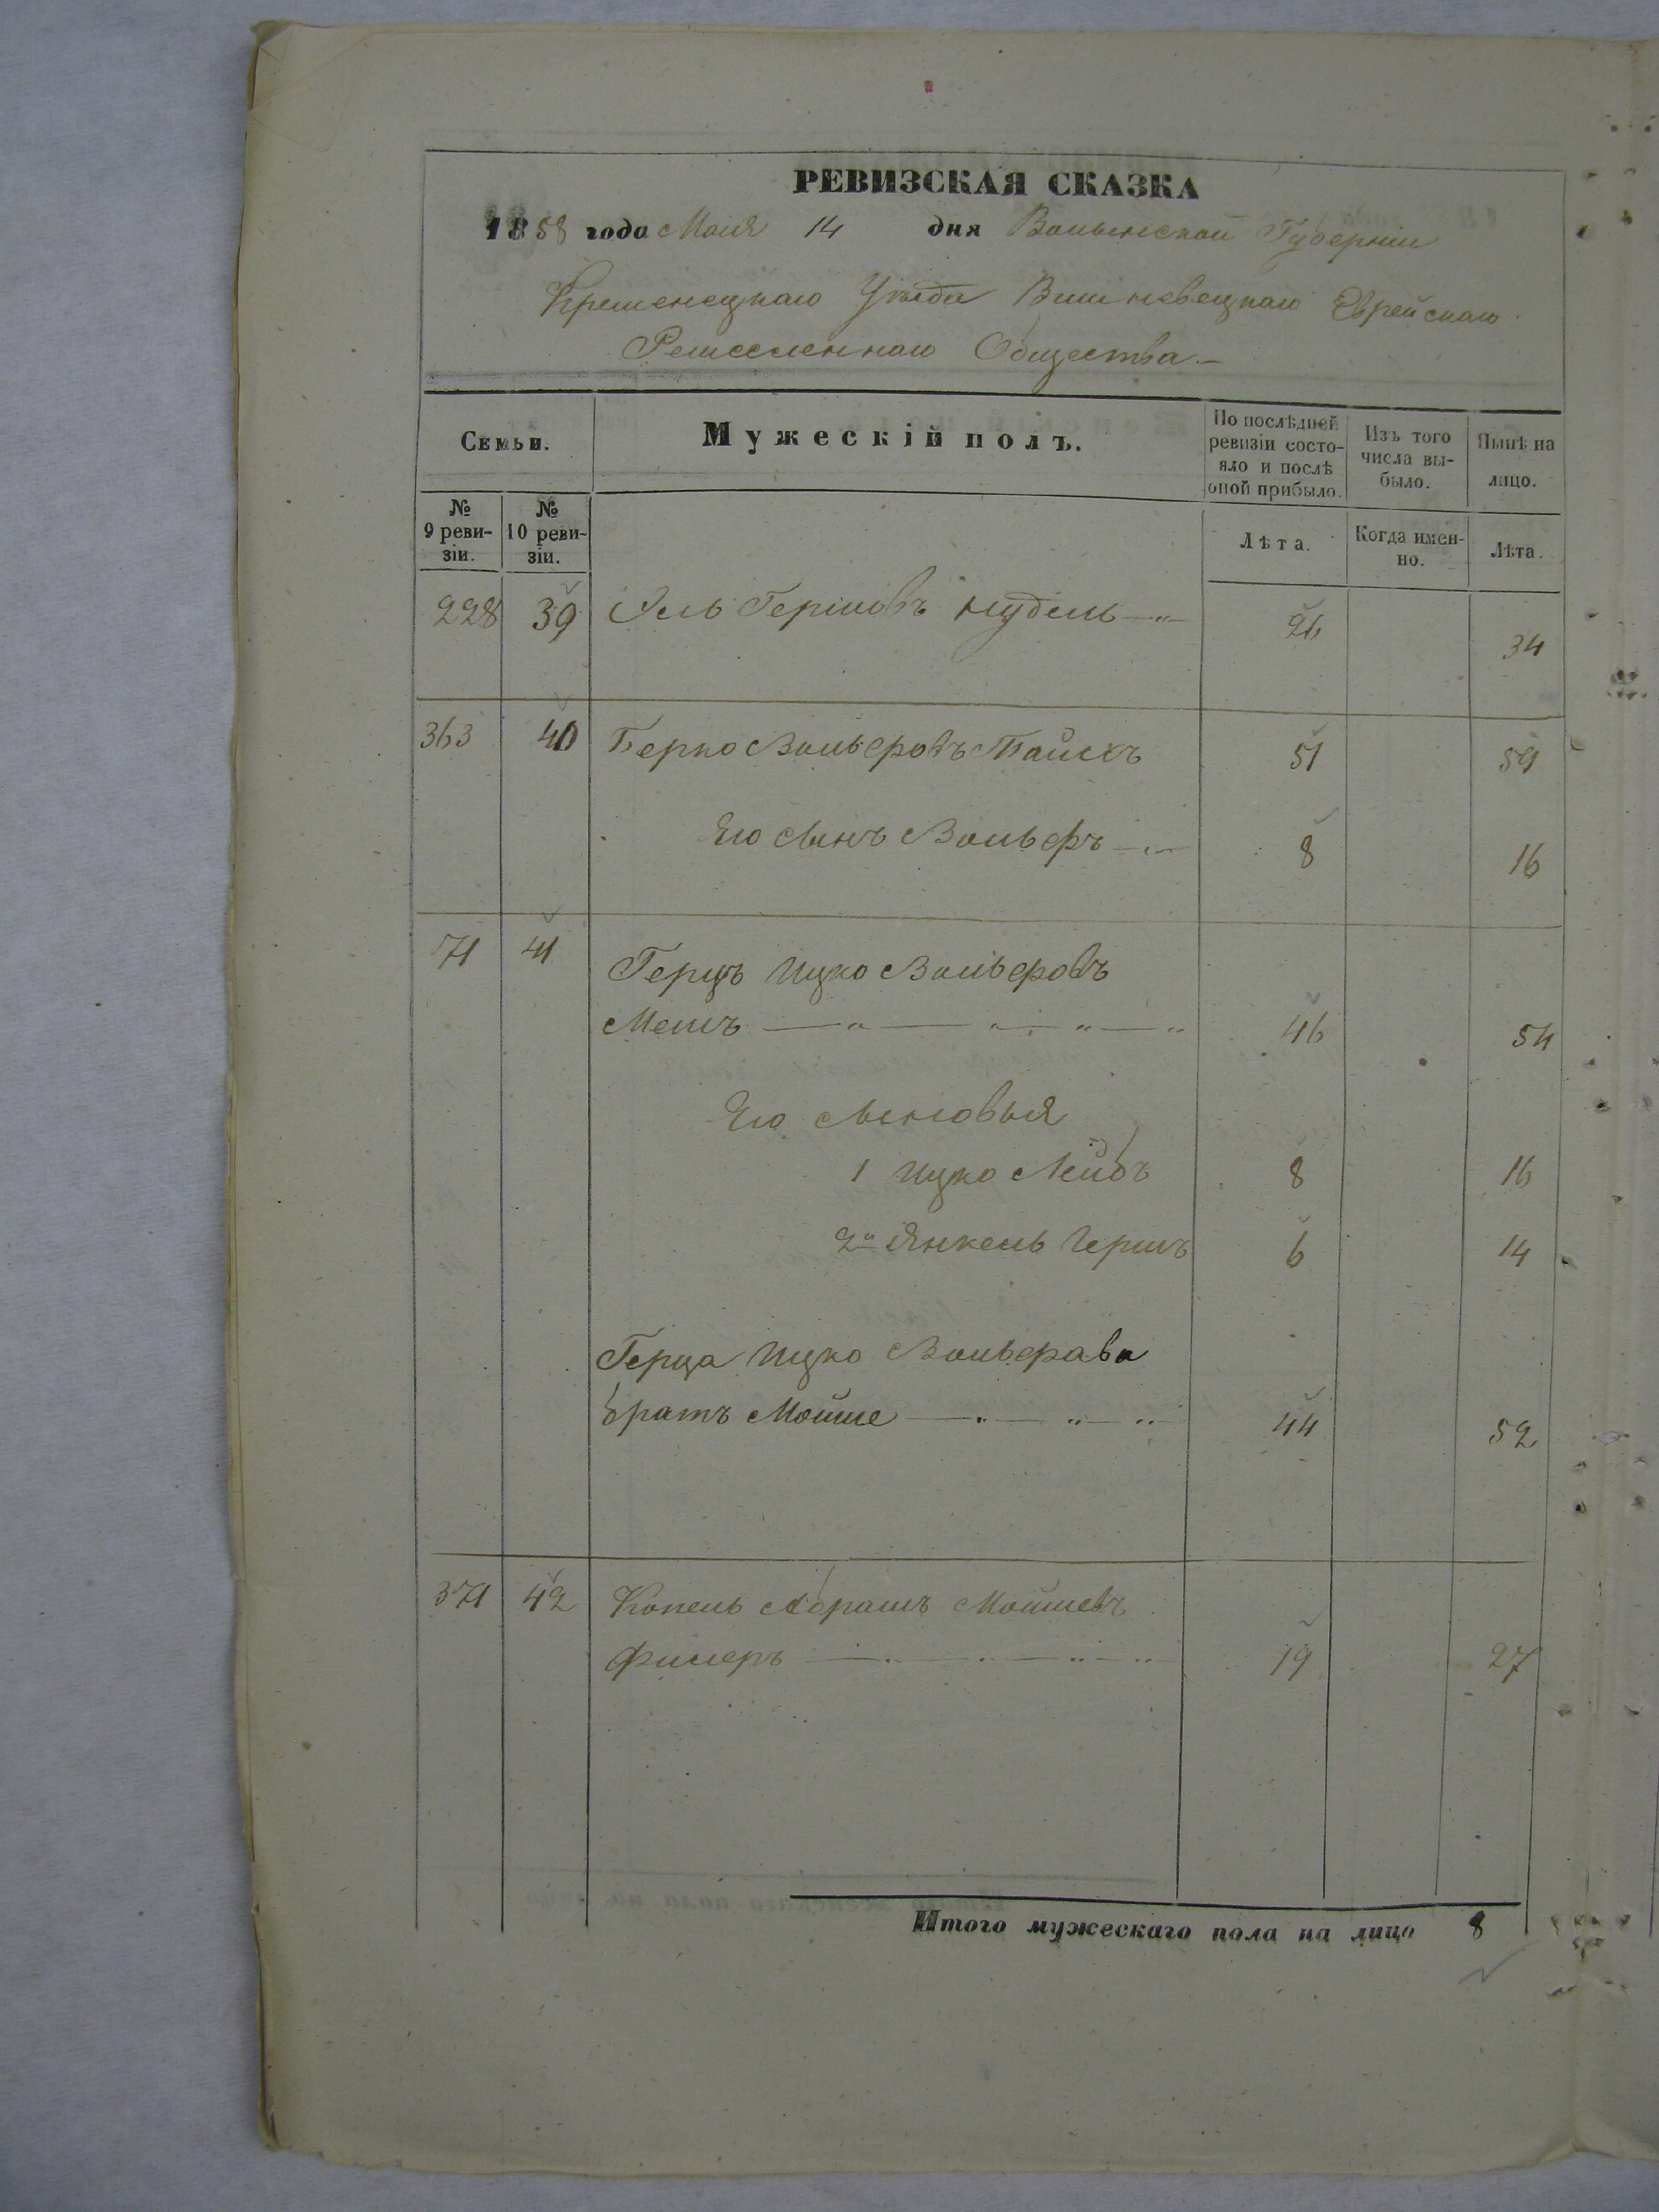 РЕВИЗСКАЯ СКАЗКА
1858 года Маія 14 дня Волынской Губерніи
Кременецкаго Уѣзда Вишневецкаго Еврейскаго
Ремесленнаго Общества.—
Семьи.
Мужескій полъ.
По послѣдней ревизіи состояло и послѣ оной прибыло.
Изъ того числа выбыло.
Нынѣ на лицо.
№ 9 ревизіи.
№ 10 ревизіи.
Лѣта.
Когда именно.
Лѣта.
228 39 Гершовъ Нудель 26 34
363 40 Берко Вольфовъ 51 59
Его сынъ Вольфъ 8 16
71 41 Герцъ Ицко Вольфовъ
46 54
Его сыновья
1 Ицко Лейбъ 8 16
2й Янкель Гершъ 6 14
Герца Ицко Вольфова
братъ Мойше 44 52
371 42 Копель Абрамъ Мойшевъ
Фишеръ 19 27
Итого мужескаго пола на лицо 8